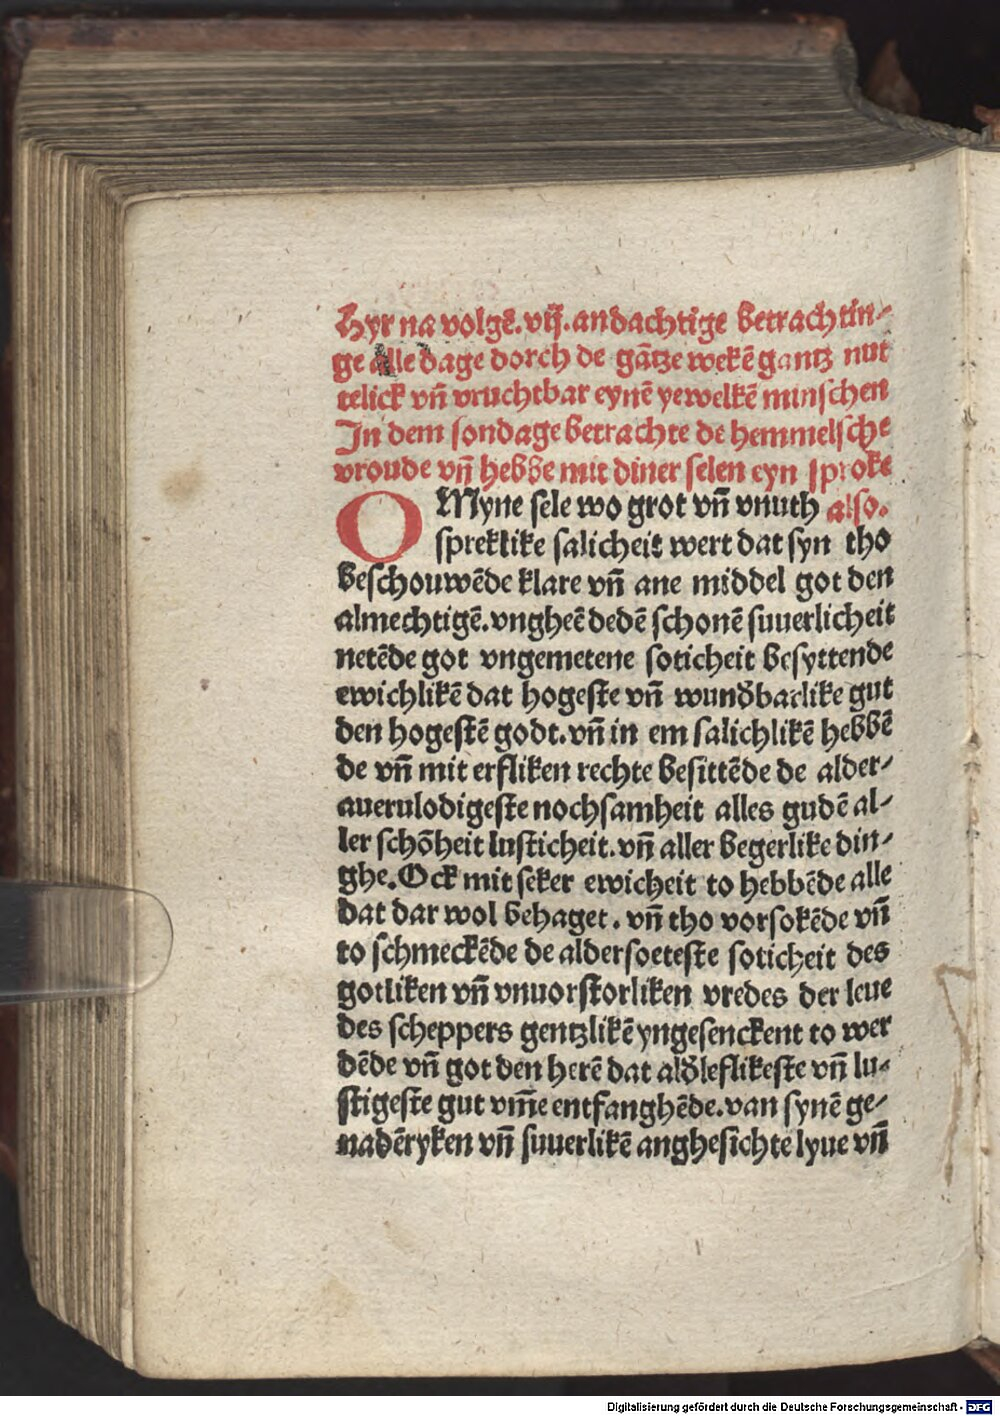 Hyr na volgē. vij. andachtige betrachtin⸗
ge alle dage dorch de gātze wekē gantz nut
telick vn̄ vruchtbar eynē yewelkē minschen
In dem sondage betrachte de hemmelsche
vroude vn̄ hebbe mit diner selen eyn sproke
O Myne sele wo grot vn̄ vnuth also.
spreklike salicheit wert dat syn tho
beschouwēde klare vn̄ ane middel got den
almechtigē. vngheē dedē schonē suuerlicheit
netēde got vngemetene soticheit besyttende
ewichlikē dat hogeste vn̄ wunđbarlike gut
den hogestē godt. vn̄ in em salichlikē hebbē
de vn̄ mit erfliken rechte besittēde de alder⸗
auerulodigeste nochsamheit alles gudē al⸗
ler schōheit lusticheit. vn̄ aller begerlike din⸗
ghe. Ock mit seker ewicheit to hebbēde alle
dat dar wol behaget. vn̄ tho vorsokēde vn̄
to schmeckēde de aldersoeteste soticheit des
gotliken vn̄ vnuorstorliken vredes der leue
des scheppers gentzlikē yngesenckent to wer
dēde vn̄ got den herē dat alđleflikeste vn̄ lu⸗
stigeste gut vm̄e entfanghēde. van synē ge⸗
nadēryken vn̄ suuerlikē anghesichte lyue vn̄
Digitalisierung gefördert durch die Deutsche Forschungsgemeinschaft - DFG